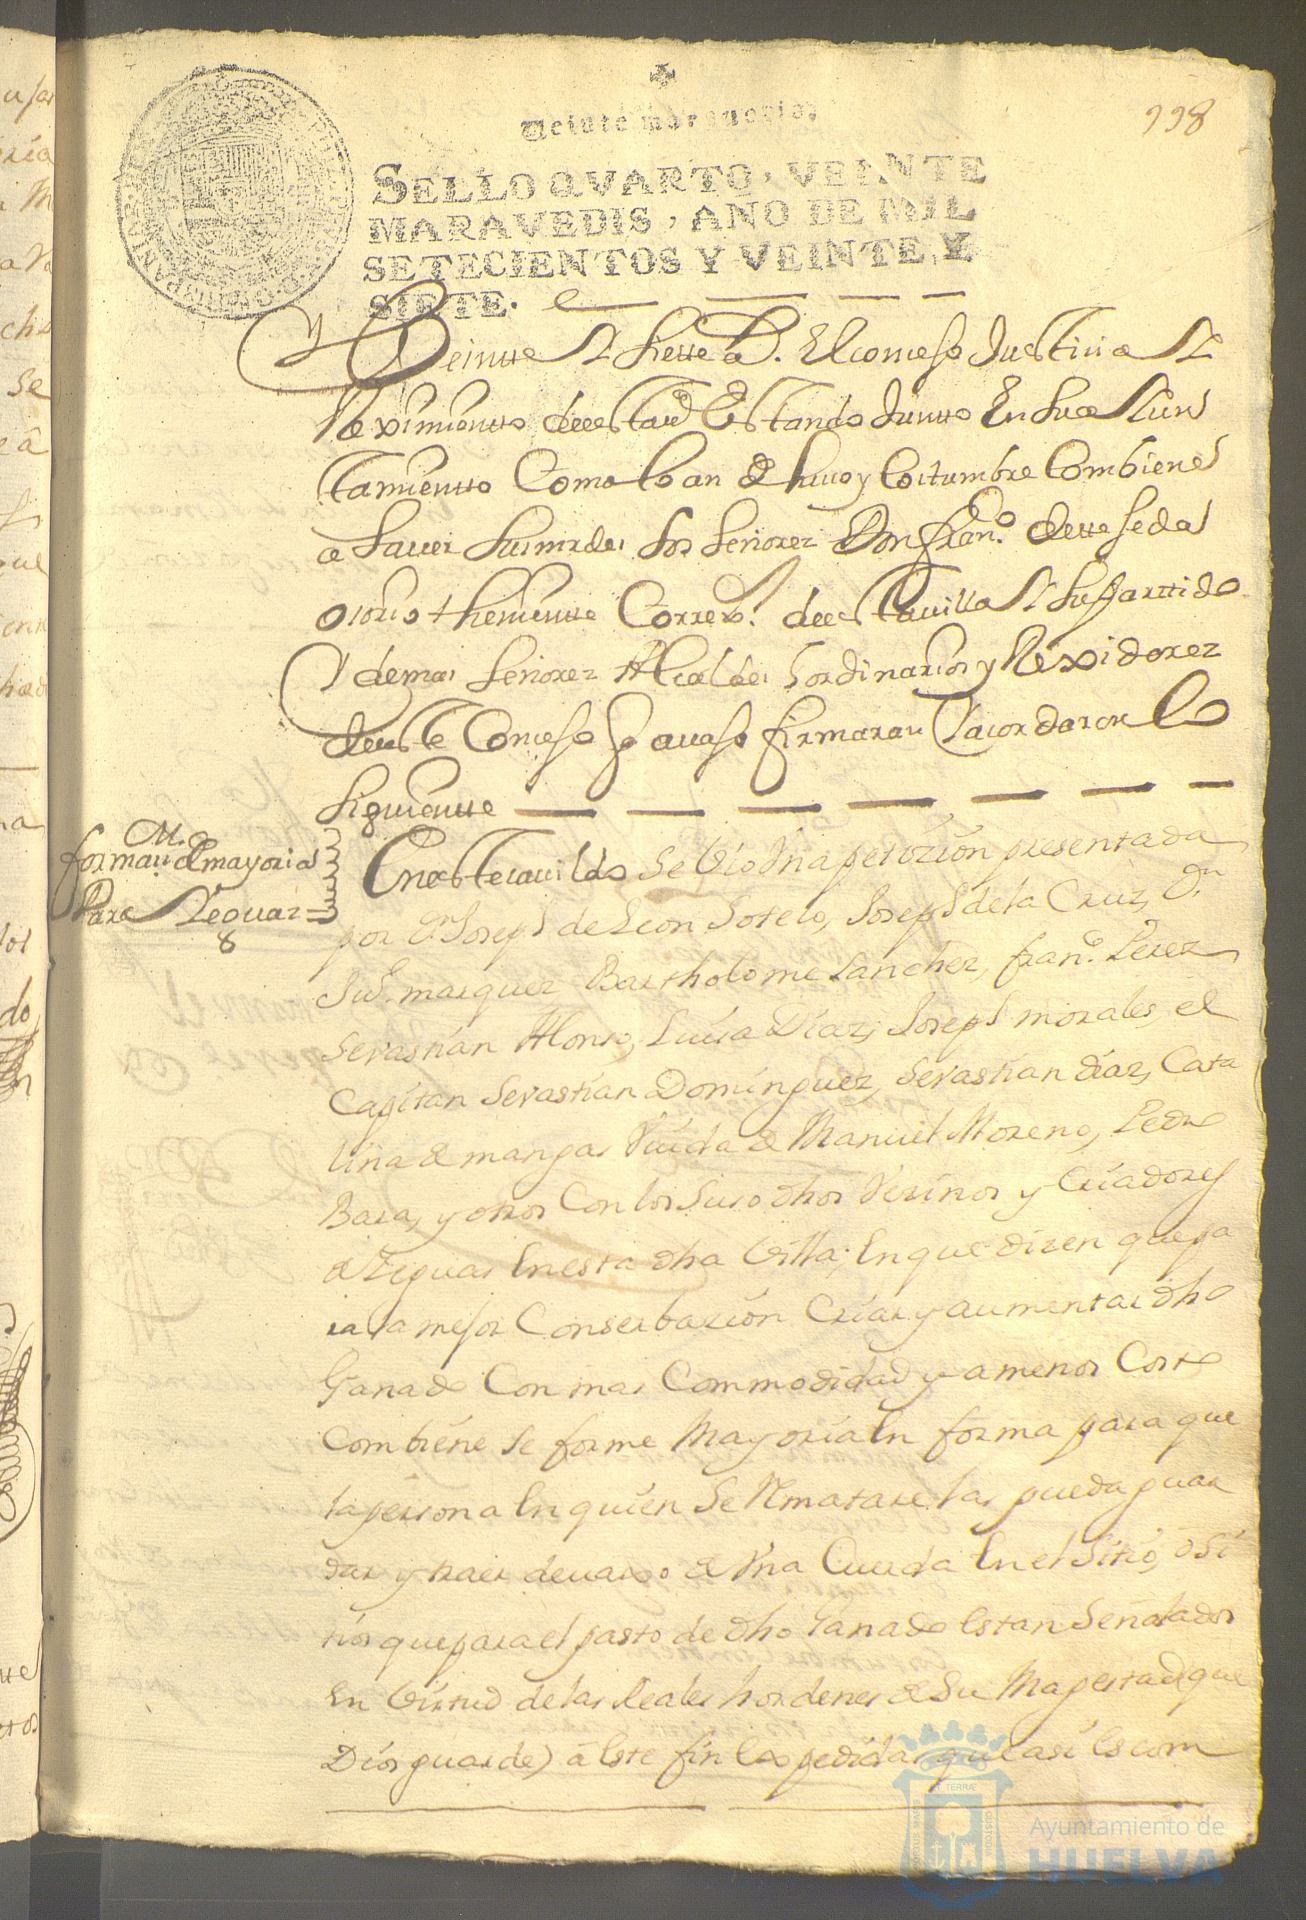 998
Veinte maravedis.
SELLO QVARTO, VEINTE
MARAVEDIS, AÑO DE MIL
SETECIENTOS Y VEINTE Y
SIETE.
Y Beintte Y siette a. El Conçejo Justiçia Y
Reximientto de esta Villa Estando Junto En su aYun
tamientto Como lo an de huso y Costumbre Combiene
a Sauer los señores Don Fran.co
osorio thenientte Corre.or de esta uilla Y su Parttido
Y demas señores Alcaldes hordinarios y Rexidores
de este Conçejo q auajo firmaran Y acordaron lo
siguientte
forma de mayoria
Para Yeguas
8
En este cauildo se bio Una petizion presentada
por Dn Joseph de Leon Sotelo, Joseph de la Cruz, Dn
marquez Bartholome Sanchez, fran.co Perez
Sevastian Alonso, Luiza Diaz, Joseph morales, el
Capitan Sevastian Dominguez, Sevastian diaz, Cata
lina de mangas Viuda de Manuel Moreno, Pedro
Bara, y otros Con los suso dhos Vezinos y Criadores
de Yeguas En esta dha Villa; En que dizen que pa
ra la mejor Conserbazion Criar y aumentar dho
Ganado Con mas Commodidad y a menos Coste
Combiene se forme Mayoria En forma para que
la persona En quien se Rematare las pueda guar
dar y traer devaxo de Una Cuerda En el Sitio, o si
tios que para el pasto de dho Ganado Estan Señalados
En Virtud de las Reales hordenes de Su Magestad que
Dios guarde) a Este fin Expedidas que asi Es com
TERRÆ
Ayuntamiento de
HUELVA